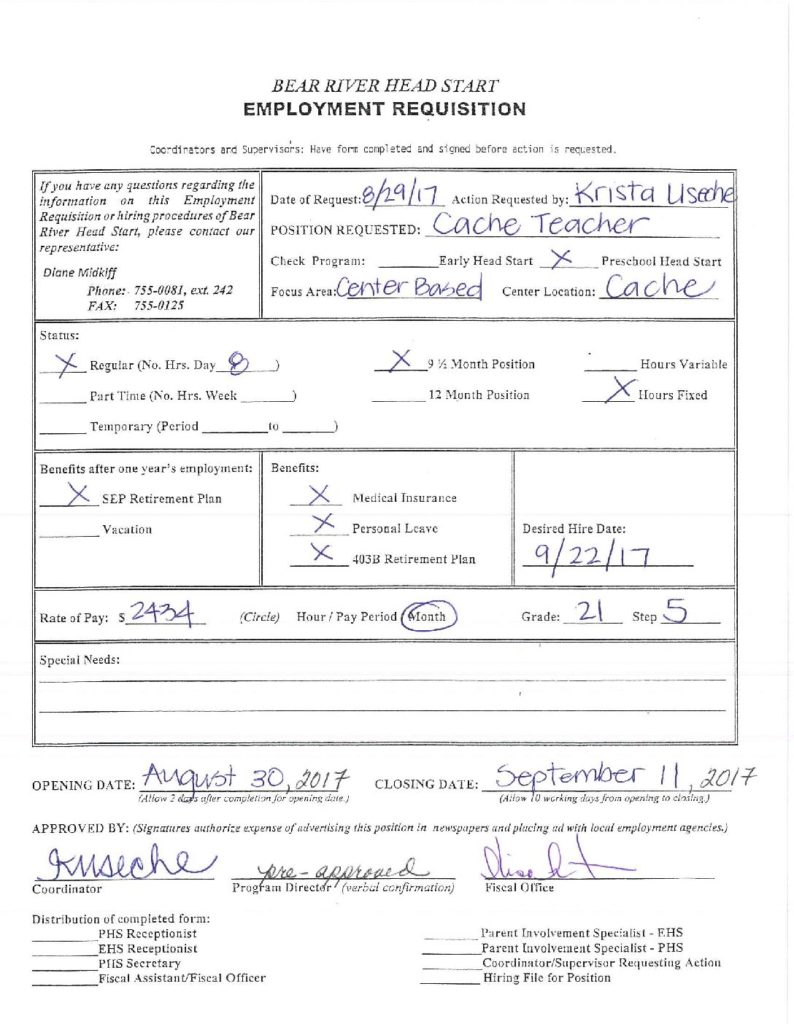 BEAR RIVER HEAD START
EMPLOYMENT REQUISITION
Coordinators and Supervisors: Have form completed and signed before action is requested.
If you have any questions regarding the
information on this Employment
Requisition or hiring procedures of Bear
River Head Start, please contact our
representative:
Diane Midkiff
Phone: 755-0081, ext. 242
FAX: 755-0125
Date of Request: 8/29/17 Action Requested by: Krista Useche
POSITION REQUESTED: Cache Teacher
Check Program: ______ Early Head Start X Preschool Head Start
Focus Area: Center Based Center Location: Cache
Status:
X Regular (No. Hrs. Day 8 ) X 9 ½ Month Position ______ Hours Variable
______ Part Time (No. Hrs. Week ______) ______ 12 Month Position X Hours Fixed
______ Temporary (Period ______ to ______)
Benefits after one year's employment:
X SEP Retirement Plan
______ Vacation
Benefits:
X Medical Insurance
X Personal Leave
X 403B Retirement Plan
Desired Hire Date:
9/22/17
Rate of Pay: $ 2434 (Circle) Hour / Pay Period / Month Grade: 21 Step 5
Special Needs:
OPENING DATE: August 30, 2017 CLOSING DATE: September 11, 2017
(Allow 2 days after completion for opening date.) (Allow 10 working days from opening to closing.)
APPROVED BY: (Signatures authorize expense of advertising this position in newspapers and placing ad with local employment agencies.)
KUseche pre-approved
Coordinator Program Director (verbal confirmation) Fiscal Office
Distribution of completed form:
______ PHS Receptionist ______ Parent Involvement Specialist - EHS
______ EHS Receptionist ______ Parent Involvement Specialist - PHS
______ PHS Secretary ______ Coordinator/Supervisor Requesting Action
______ Fiscal Assistant/Fiscal Officer ______ Hiring File for Position